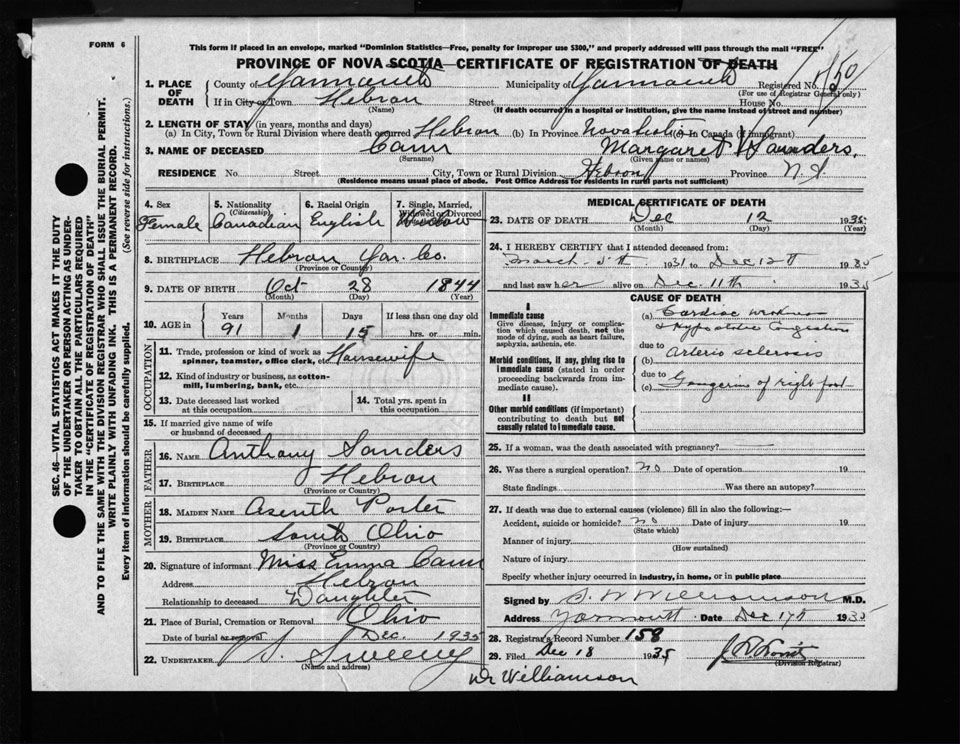 FORM 6
This form if placed in an envelope, marked "Dominion Statistics—Free, penalty for improper use $300," and properly addressed will pass through the mail "FREE"
PROVINCE OF NOVA SCOTIA—CERTIFICATE OF REGISTRATION OF DEATH
1. PLACE OF DEATH County of Yarmouth Municipality of Yarmouth Registered No.
(For use of Registrar General only)
If in City or Town Hebron Street House No.
(Name) (If death occurred in a hospital or institution, give the name instead of street and number)
2. LENGTH OF STAY (in years, months and days)
(a) In City, Town or Rural Division where death occurred Hebron (b) In Province Nova Scotia (c) In Canada (if immigrant)
3. NAME OF DECEASED Cann Margaret Saunders,
(Surname) (Given name or names)
RESIDENCE No. Street City, Town or Rural Division Hebron Province N. S.
(Residence means usual place of abode. Post Office Address for residents in rural parts not sufficient)
4. Sex 5. Nationality 6. Racial Origin 7. Single, Married,
(Citizenship) Widowed or Divorced
Female Canadian English Widow
8. BIRTHPLACE Hebron Yar. Co.
(Province or Country)
9. DATE OF BIRTH Oct 28 1844
(Month) (Day) (Year)
10. AGE in Years Months Days If less than one day old
91 1 15 hrs. or min.
OCCUPATION
11. Trade, profession or kind of work as Housewife
spinner, teamster, office clerk, etc.
12. Kind of industry or business, as cotton-
mill, lumbering, bank, etc.
13. Date deceased last worked at this occupation
14. Total yrs. spent in this occupation
15. If married give name of wife
or husband of deceased
FATHER
16. NAME Anthony Sanders
17. BIRTHPLACE Hebron
(Province or Country)
MOTHER
18. MAIDEN NAME Asenth Porter
19. BIRTHPLACE South Ohio
(Province or Country)
20. Signature of informant Miss Emma Cann
Address Hebron
Relationship to deceased Daughter
21. Place of Burial, Cremation or Removal Ohio
Date of burial or removal Dec. 1935
22. UNDERTAKER Sweeny
(Name and address)
Dr Williamson
MEDICAL CERTIFICATE OF DEATH
23. DATE OF DEATH Dec 12 1935
(Month) (Day) (Year)
24. I HEREBY CERTIFY that I attended deceased from:
March 5th 1931 to Dec 12th 1935
and last saw her alive on Dec. 11th 1935
CAUSE OF DEATH
I
Immediate cause
Give disease, injury or complica-
tion which caused death, not the
mode of dying, such as heart failure,
asphyxia, asthenia, etc.
(a) Cardiac weakness
& Hypostatic Congestion
due to
Morbid conditions, if any, giving rise to
immediate cause (stated in order
proceeding backwards from im-
mediate cause).
(b) Arterio sclerosis
due to
(c) Gangrene of right foot
II
Other morbid conditions (if important)
contributing to death but not
causally related to immediate cause.
25. If a woman, was the death associated with pregnancy?
26. Was there a surgical operation? no Date of operation 19
State findings Was there an autopsy?
27. If death was due to external causes (violence) fill in also the following:—
Accident, suicide or homicide? no Date of injury 19
(State which)
Manner of injury
(How sustained)
Nature of injury
Specify whether injury occurred in industry, in home, or in public place
Signed by S. W Williamson M.D.
Address Yarmouth Date Dec 17th 1935
28. Registrar's Record Number 158
29. Filed Dec 18 1935
(Division Registrar)
SEC. 46—VITAL STATISTICS ACT MAKES IT THE DUTY
OF THE UNDERTAKER OR PERSON ACTING AS UNDER-
TAKER TO OBTAIN ALL THE PARTICULARS REQUIRED
IN THE "CERTIFICATE OF REGISTRATION OF DEATH"
AND TO FILE THE SAME WITH THE DIVISION REGISTRAR WHO SHALL ISSUE THE BURIAL PERMIT.
WRITE PLAINLY WITH UNFADING INK. THIS IS A PERMANENT RECORD.
Every item of information should be carefully supplied. (See reverse side for instructions.)